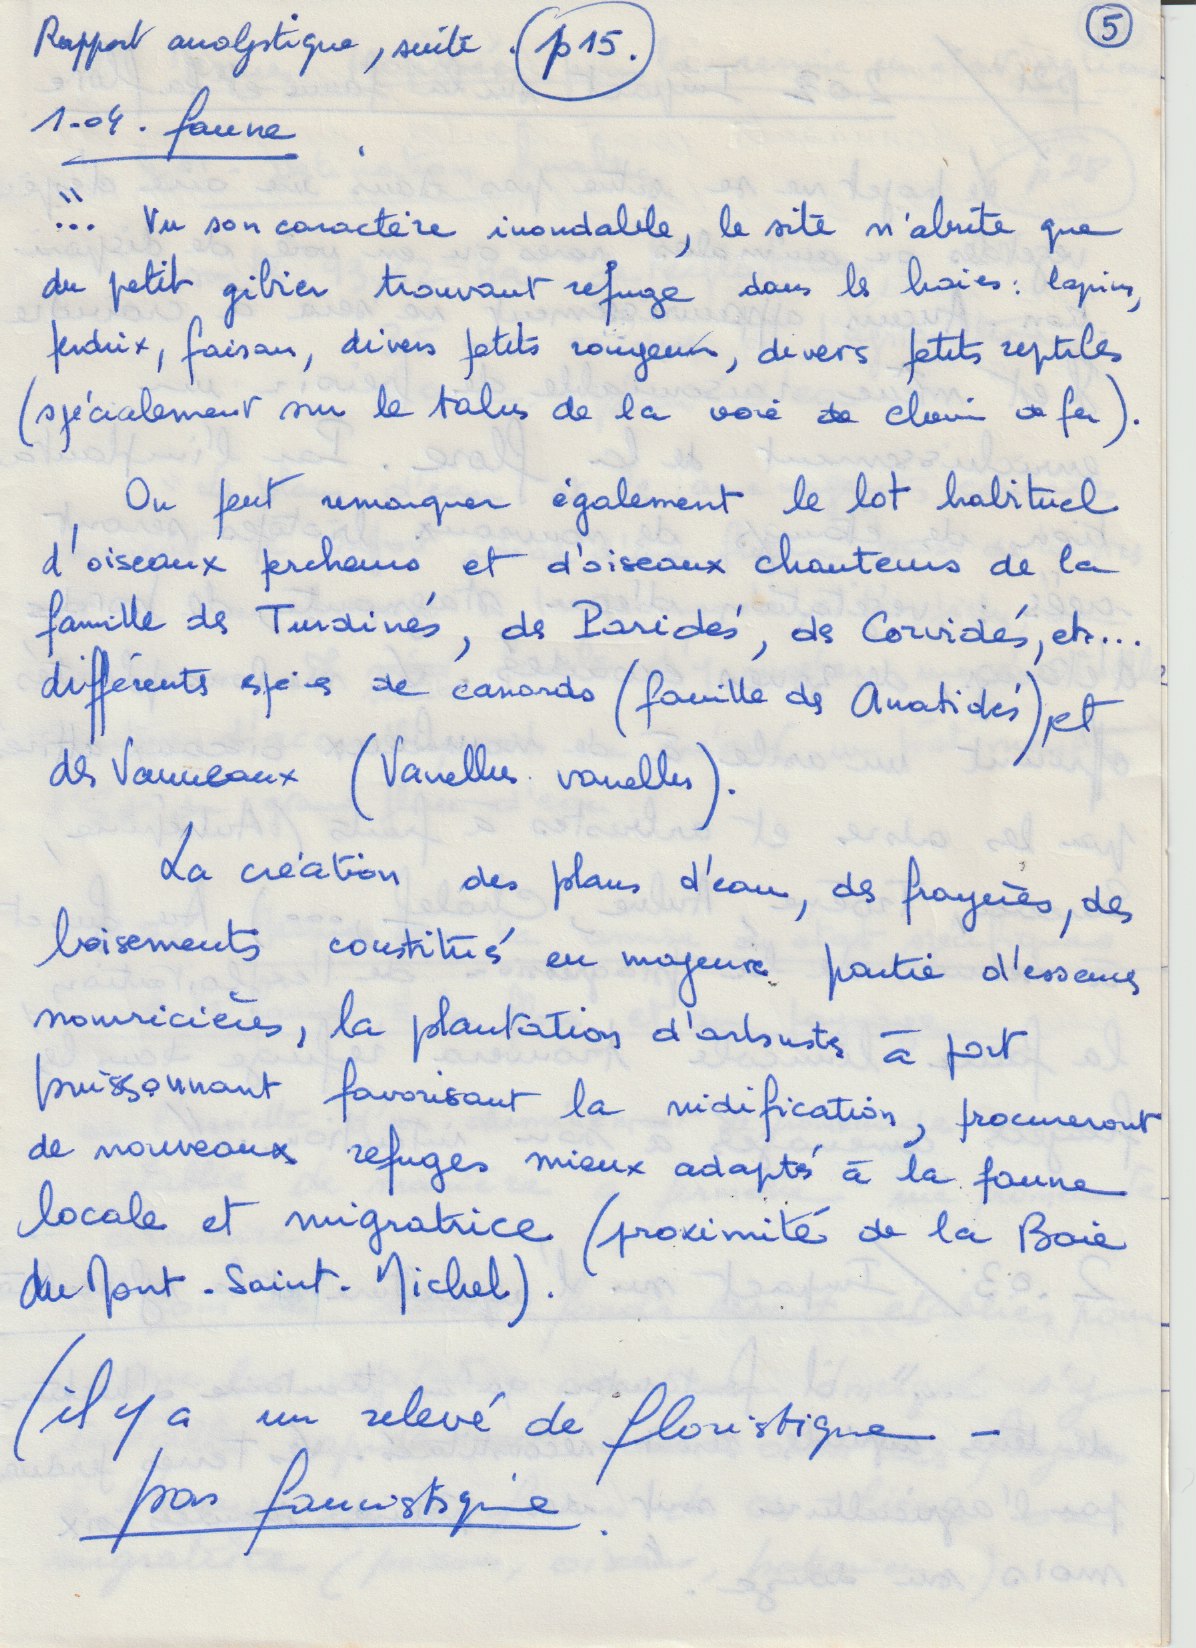 5
Rapport analystique, suite. p15.
1.04. faune
"... Vu son caractère inondable, le site n'abrite que
du petit gibier trouvant refuge dans les haies : lapins,
perdrix, faisan, divers petits rongeurs, divers petits reptiles
(spécialement sur le talus de la voie de chemin de fer).
On peut remarquer également le lot habituel
d'oiseaux percheurs et d'oiseaux chanteurs de la
famille des Turdinés, des Paridés, des Corvidés, etc...
différents espèces de canards (famille des Anatidés), et
des Vanneaux (Vanellus vanellus).
La création des plans d'eau, des frayères, des
boisements constitués en majeure partie d'essences
nourricières, la plantation d'arbustes à port
buissonnant favorisant la nidification, procureront
de nouveaux refuges mieux adaptés à la faune
locale et migratrice (proximité de la Baie
du Mont-Saint-Michel).
(il y a un relevé de floristique -
pas faunistique.